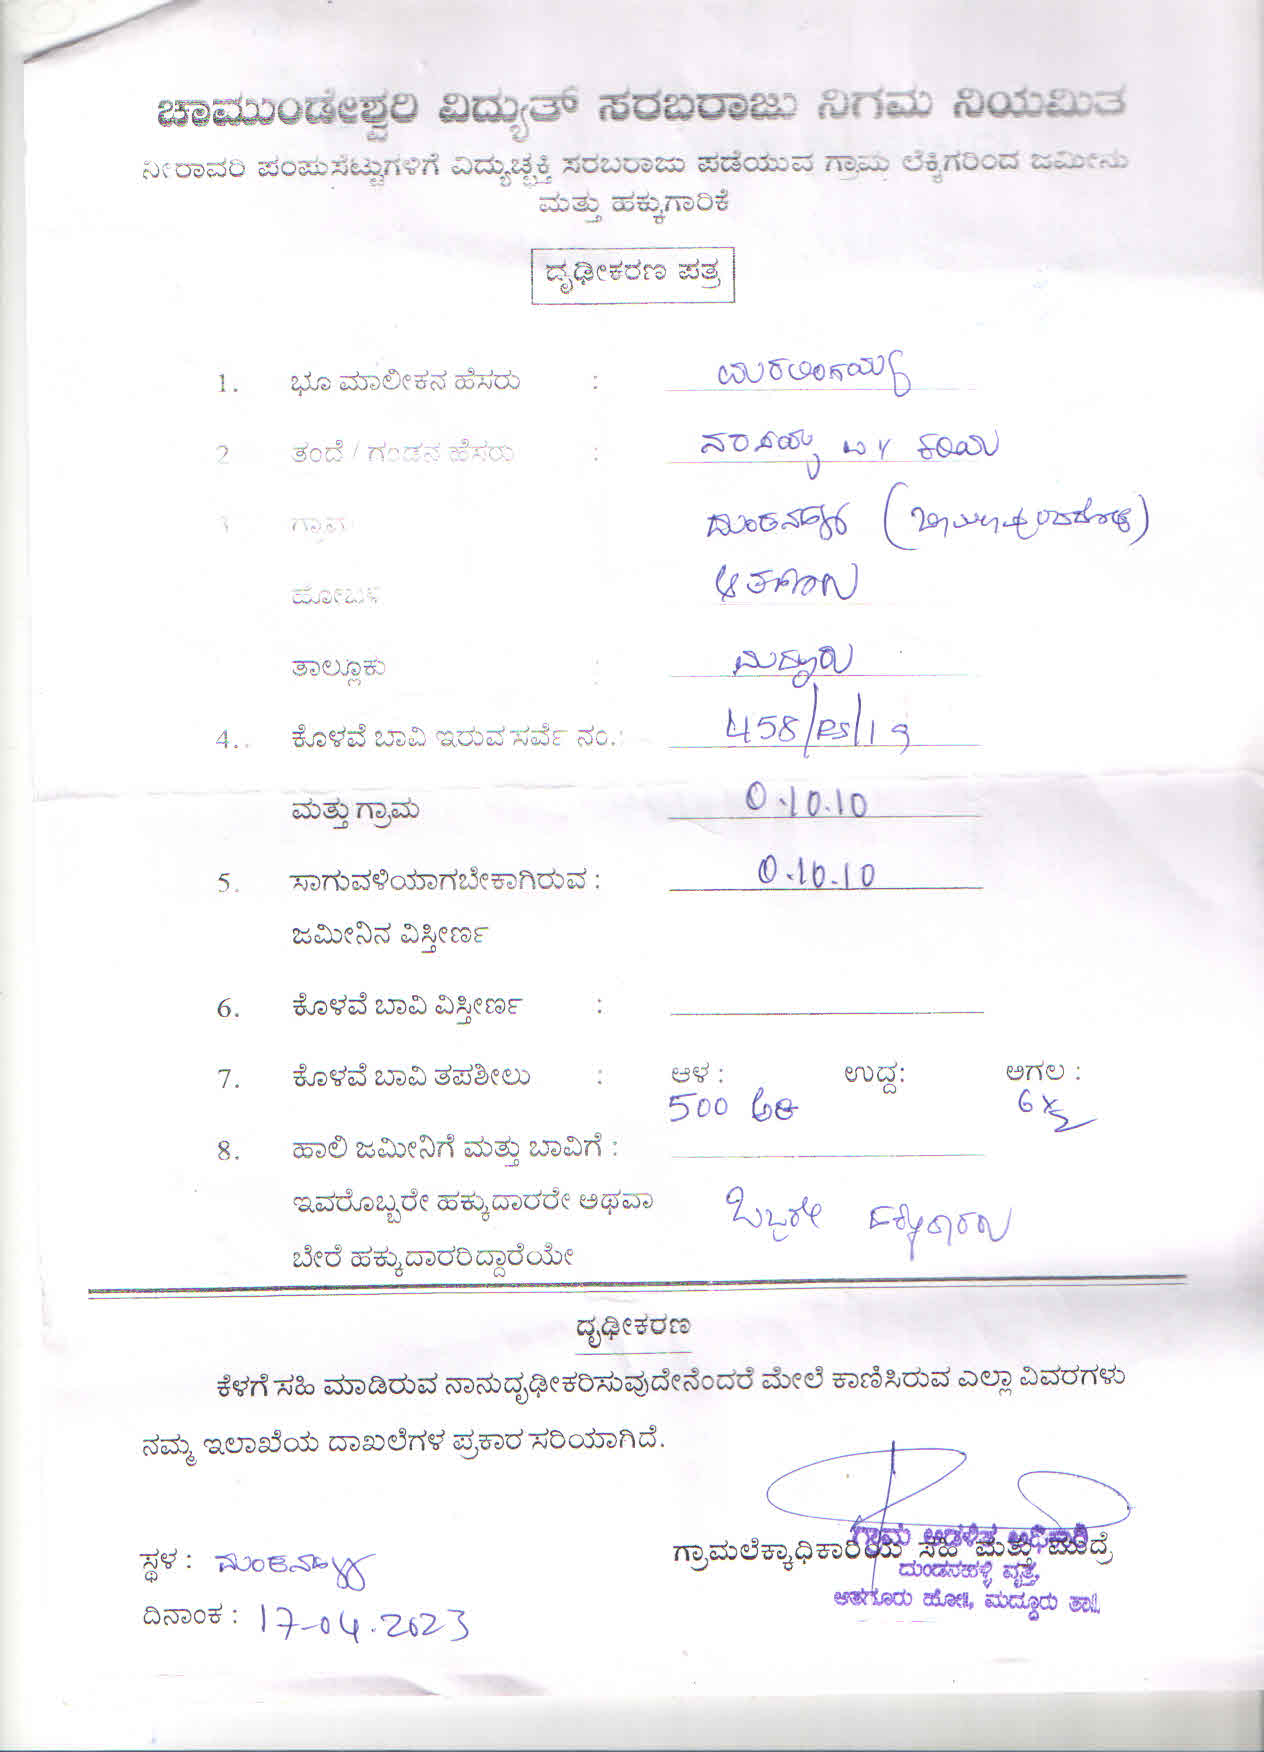 ಚಾಮುಂಡೇಶ್ವರಿ ವಿದ್ಯುತ್ ಸರಬರಾಜು ನಿಗಮ ನಿಯಮಿತ
ನೀರಾವರಿ ಪಂಪುಸೆಟ್ಟುಗಳಿಗೆ ವಿದ್ಯುಚ್ಛಕ್ತಿ ಸರಬರಾಜು ಪಡೆಯುವ ಗ್ರಾಮ ಲೆಕ್ಕಿಗರಿಂದ ಜಮೀನು
ಮತ್ತು ಹಕ್ಕುಗಾರಿಕೆ
ದೃಢೀಕರಣ ಪತ್ರ
1. ಭೂ ಮಾಲೀಕನ ಹೆಸರು :
2 ತಂದೆ / ಗಂಡನ ಹೆಸರು : ನರಸಿಯ್ಯ
3 ಗ್ರಾಮ
ಹೋಬಳಿ
ತಾಲ್ಲೂಕು : ಮದ್ದೂರು
4.. ಕೊಳವೆ ಬಾವಿ ಇರುವ ಸರ್ವೆ ನಂ.: 458/PS/19
ಮತ್ತು ಗ್ರಾಮ 0.10.10
5. ಸಾಗುವಳಿಯಾಗಬೇಕಾಗಿರುವ : 0.10.10
ಜಮೀನಿನ ವಿಸ್ತೀರ್ಣ
6. ಕೊಳವೆ ಬಾವಿ ವಿಸ್ತೀರ್ಣ :
7. ಕೊಳವೆ ಬಾವಿ ತಪಶೀಲು : ಆಳ : ಉದ್ದ: ಅಗಲ :
500 ಅಡಿ
8. ಹಾಲಿ ಜಮೀನಿಗೆ ಮತ್ತು ಬಾವಿಗೆ :
ಇವರೊಬ್ಬರೇ ಹಕ್ಕುದಾರರೇ ಅಥವಾ ಒಬ್ಬರೇ ಹಕ್ಕುದಾರರು
ಬೇರೆ ಹಕ್ಕುದಾರರಿದ್ದಾರೆಯೇ
ದೃಢೀಕರಣ
ಕೆಳಗೆ ಸಹಿ ಮಾಡಿರುವ ನಾನುದೃಢೀಕರಿಸುವುದೇನೆಂದರೆ ಮೇಲೆ ಕಾಣಿಸಿರುವ ಎಲ್ಲಾ ವಿವರಗಳು
ನಮ್ಮ ಇಲಾಖೆಯ ದಾಖಲೆಗಳ ಪ್ರಕಾರ ಸರಿಯಾಗಿದೆ.
ಗ್ರಾಮ ಆಡಳಿತ ಅಧಿಕಾರಿ
ಗ್ರಾಮಲೆಕ್ಕಾಧಿಕಾರಿಯ ಸಹಿ ಮತ್ತು ಮುದ್ರೆ
ಸ್ಥಳ :
ದುಂಡನಹಳ್ಳಿ ವೃತ್ತ,
ಆತಗೂರು ಹೋ||, ಮದ್ದೂರು ತಾ||
ದಿನಾಂಕ : 17-04.2023